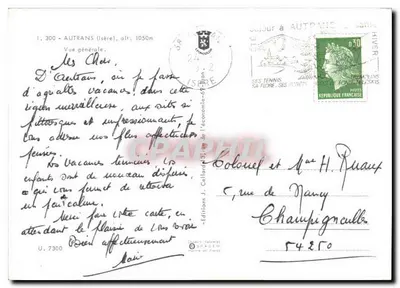 1. 300 - AUTRANS (Isère), alt. 1050m
Vue générale.
Mes Chers,
D'Autrans, où je passe
d'agréables vacances dans cette
région merveilleuse, aux sites si
pittoresques et impressionnants, je
vous adresse mes plus affectueuses
pensées.
Les vacances terminées les
enfants sont de nouveau
qui vous permet de
un peu calme.
Merci pour votre carte, en
attendant le plaisir de vous voir
Bien affectueusement
U. 7300
Editions J. Cellard
AUTRANS
ISERE
HIVER
0,30
REPUBLIQUE FRANÇAISE
Colonel et Mme H. Ruaux
5, rue de Nancy
Champigneulles
54250